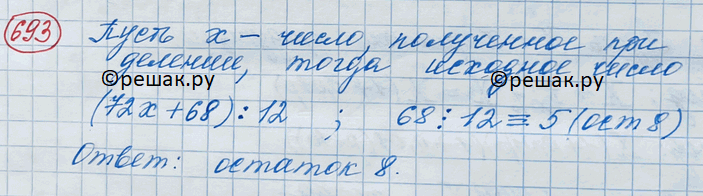 693 Пусть x – число, полученное при
делении, тогда исходное число
©решак.ру ©решак.ру
(72x+68):12 ; 68:12≡5(ост 8)
Ответ: остаток 8.